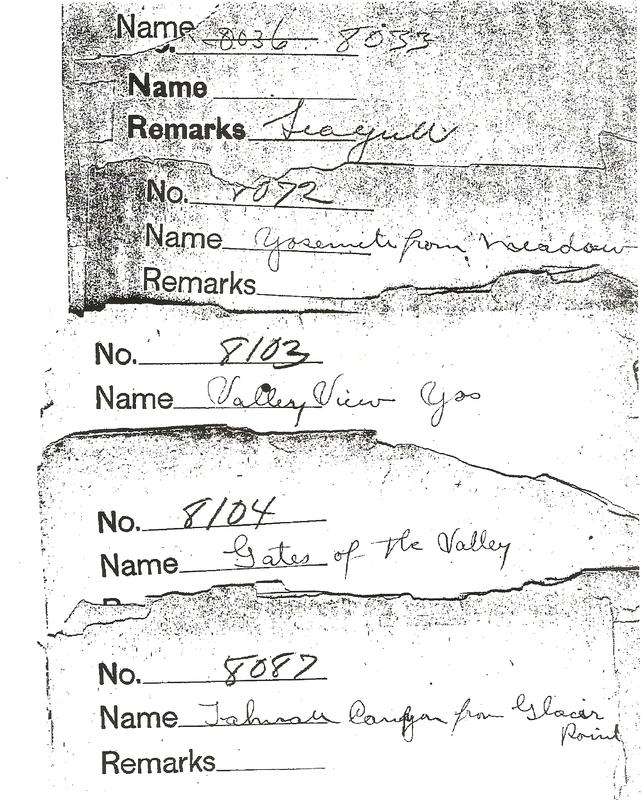 Name 8036 8033
Name
Remarks Seagull
No. 8072
Name Yosemite from Meadow
Remarks
No. 8103
Name Valley View Yos
No. 8104
Name Gates of The Valley
No. 8087
Name Canyon from Glacier
Point
Remarks